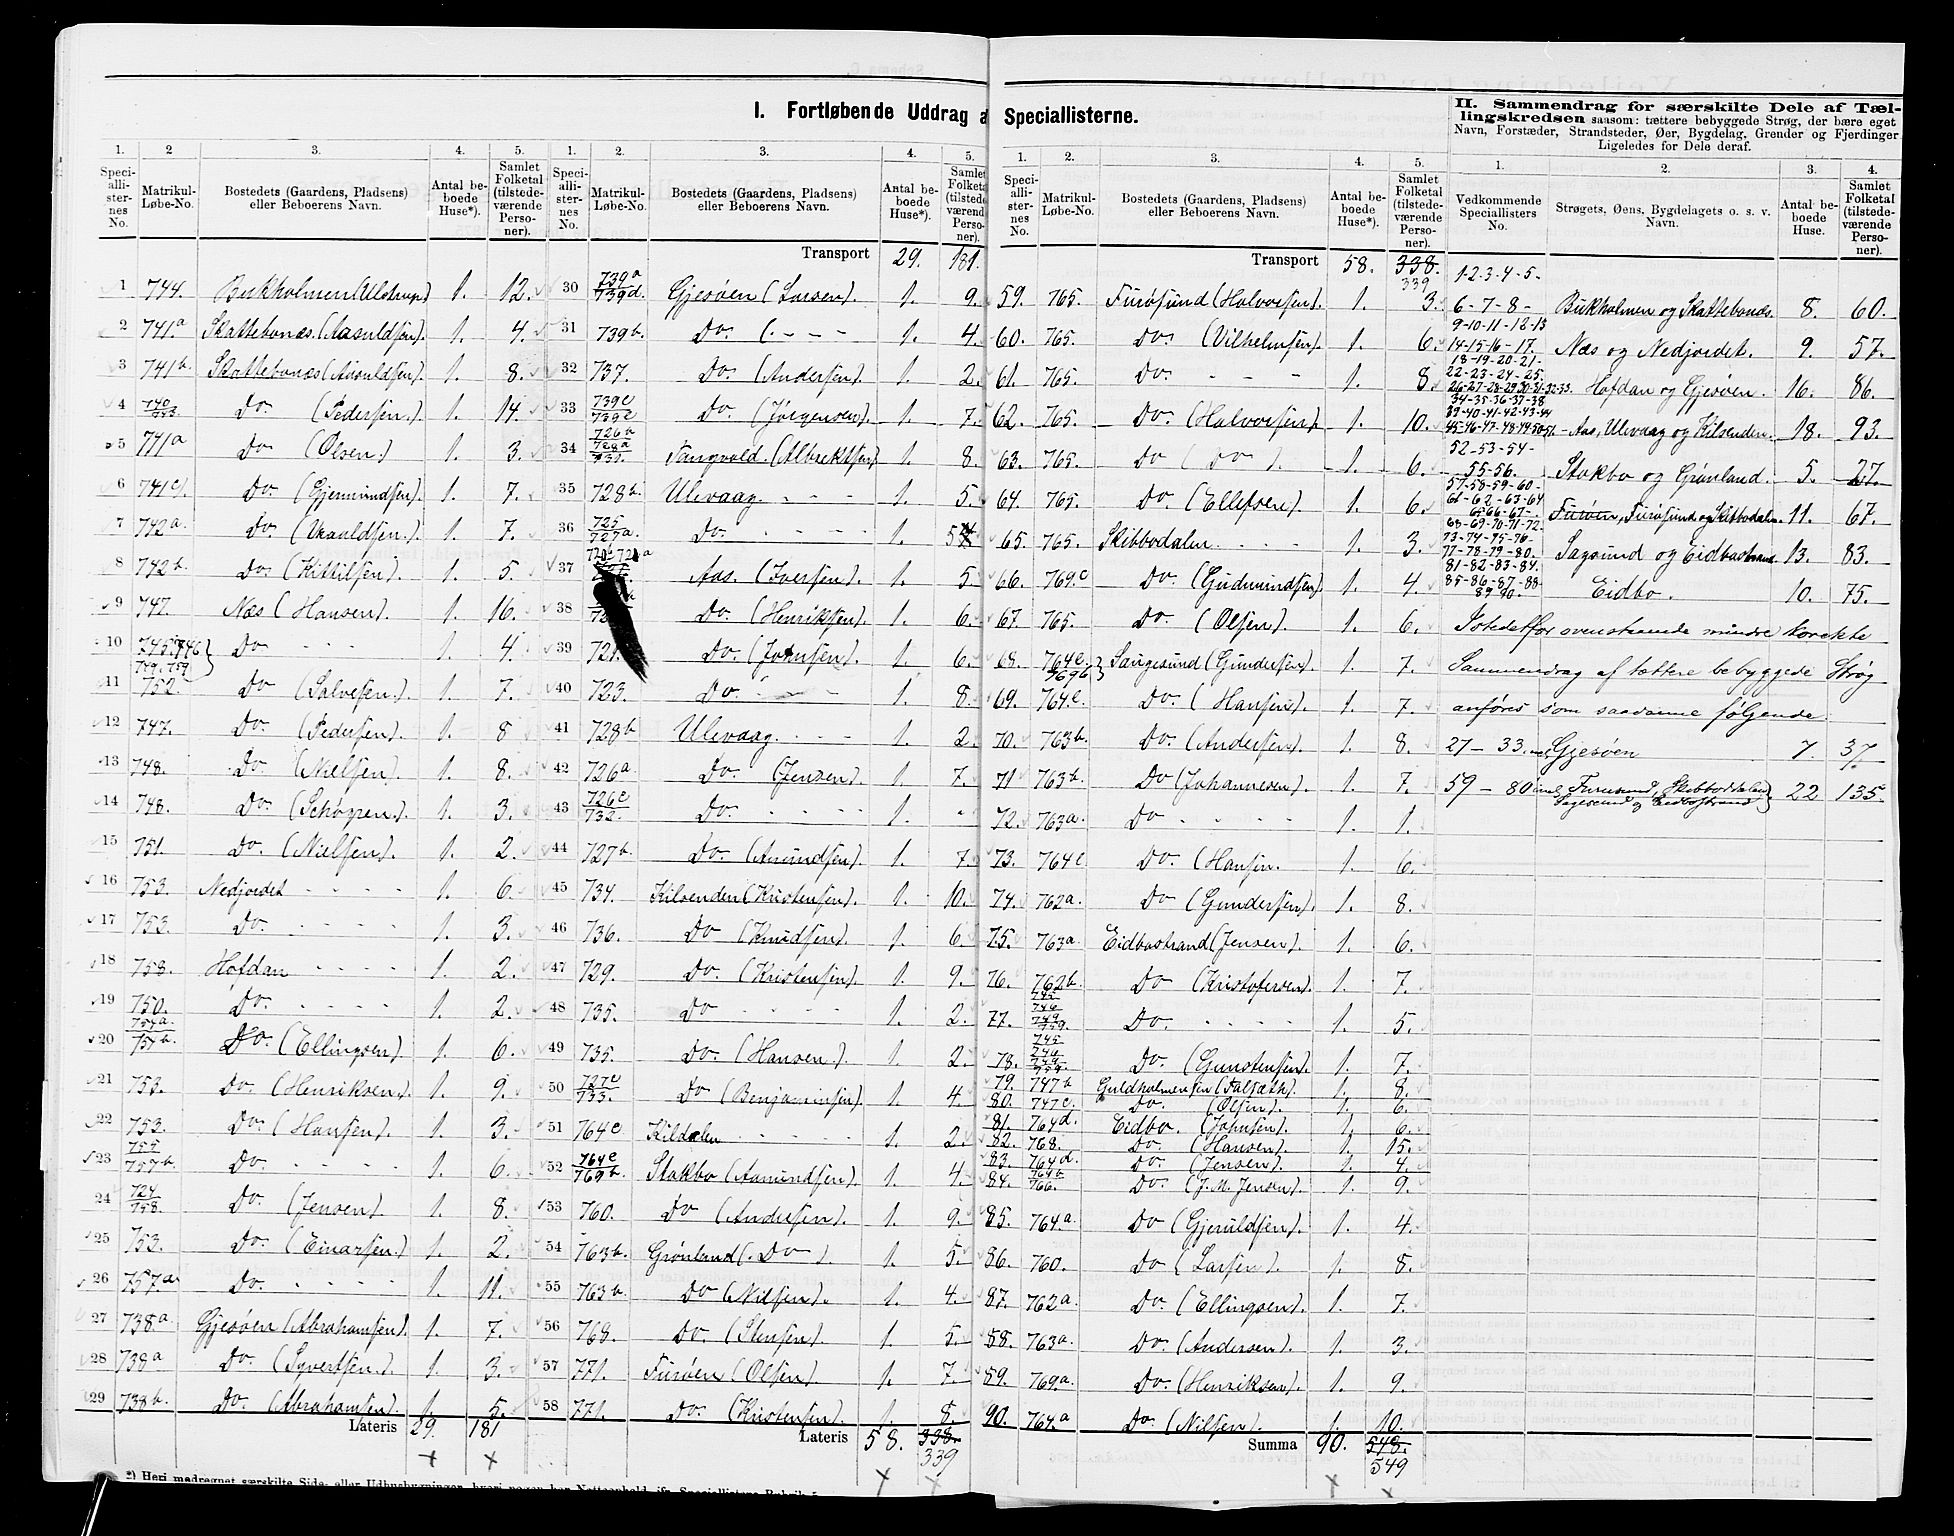 I. Fortløbende Uddrag a Speciallisterne.
II. Sammendrag for særskilte Dele af Tæl-
lingskredsen saasom: tættere bebyggede Strøg, der bære eget
Navn, Forstæder, Strandsteder, Øer, Bygdelag, Grender og Fjerdinger
Ligeledes for Dele deraf.
1. 2 3. 4. 5.
Speci-alli-ster-nes No. Matrikul-Løbe-No. Bostedets (Gaardens, Pladsens) eller Beboerens Navn. Antal be-boede Huse*). Samlet Folketal (tilstede-værende Perso-ner).
1 744. Bukholmen (Ulstrup) 1. 12.
2 741a Skattebonæs. (Aasuldsen). 1. 4.
3 741b. Skattebonæs (Aasuldsen). 1. 8.
4 740 Do. (Pedersen.) 1. 14.
5 741a Do (Olsen.) 1. 3.
6 741c). Do. (Gjermundsen). 1. 7.
7 742a. Do. 1. 7.
8 742b. Do. (Kittilsen). 1. 5.
9 747. Næs (Hansen). 1. 16.
10 745.746 749.759 } Do 1. 4.
11 752. Do (Salvesen.) 1. 7.
12 747. Do (Pedersen). 1. 8
13 748. Do. (Nielsen). 1. 8.
14 748. Do. 1. 3.
15 751. Do. (Nielsen). 1. 2.
16 753. Nedjordet 1. 6.
17 753. Do. 1. 3.
18 758. Hofdan 1. 2.
19 750. Do. 1. 2.
20 754a. 757b. Do. (Ellingsen). 1. 6.
21 753. Do. (Henriksen.) 1. 9.
22 753. Do. (Hansen). 1. 3.
23 755 757b. Do. 1. 6.
24 724 758 Do. (Jensen). 1. 8.
25 753. Do. (Einarsen.) 1. 2.
26 757a Do. 1. 11.
27 738a. Gjesøen (Abrahamsen). 1. 7.
28 738a Do. (Syvertsen.) 1. 3.
29 738b. Do. (Abrahamsen). 1. 5.
Lateris 29. 181
*) Heri medregnet særskilte Side- eller Udhusbygninger
1. 2. 3. 4. 5.
Speci-alli-ster-nes No. Matrikul-Løbe-No. Bostedets (Gaardens, Pladsens) eller Beboerens Navn. Antal be-boede Huse*). Samlet Folketal (tilstede-værende Perso-ner).
Transport 29. 181.
30 739a 739d. Gjesøen (Larsen). 1. 9.
31 739b. Do. 1. 4.
32 737. Do. (Andersen). 1. 2.
33 739c 739e Do. (Jørgensen). 1. 7.
34 726b 728a Tangvald. (Albrektsen) 1. 8.
35 728b. Ulevaag 1. 5.
36 725 727a. Do. 1. 5
37 Aas. (Iversen). 1. 5.
38 Do. (Henriksen). 1. 6.
39 721. Do. (Johnsen). 1. 6.
40 723. Do. 1. 8.
41 728b Ulevaag 1. 2.
42 726a Do. (Jensen) 1. 7.
43 726c 732. Do. 1.
44 727b. Do. (Amundsen) 1. 7.
45 734. Kilsenden (Kristensen). 1. 10.
46 736. Do (Knudsen). 1. 6
47 729. Do. (Kristensen). 1. 9.
48 735. Do 1. 2.
49 735. Do. (Hansen.) 1. 2.
50 727c 733. Do (Benjaminsen). 1. 4.
51 764c Kildalen 1. 2.
52 764c 769b. Stokbo (Aamundsen). 1. 4.
53 760. Do (Andersen). 1. 9.
54 763b. Grønland (Do). 1. 5.
55 763b. Do (Nilsen). 1. 4.
56 768. Do. 1. 5.
57 771. Furøen (Olsen) 1. 7.
58 771. Do. (Kristensen). 1. 8.
Lateris 58. 338. 339
1. 2. 3. 4. 5.
Speci-alli-ster-nes No. Matrikul-Løbe-No. Bostedets (Gaardens, Pladsens) eller Beboerens Navn. Antal be-boede Huse*). Samlet Folketal (tilstede-værende Perso-ner).
Transport 58. 338. 339
59. 765. Furøsund (Halvorsen). 1. 3.
60. 765. Do. (Vilhelmsen). 1. 6.
61. 765. Do. 1. 8
62. 765. Do. (Halvorsen). 1. 10.
63. 765. Do (Do). 1. 6.
64. 765. Do. (Ellefsen). 1. 6.
65. 765. Skibbodalen 1. 3.
66. 769.c Do. (Gudmundsen). 1. 4.
67. 765. Do. (Olsen). 1. 6.
68. 764c. 769b } Saugesund (Gundersen). 1. 7.
69. 764c. Do. (Hansen). 1. 7.
70. 763b. Do. (Andersen). 1. 8.
71 763b. Do (Johannesen). 1. 7.
72. 763a. Do 1. 1.
73. 764c Do. (Hansen. 1. 6.
74. 762a. Do (Gundersen). 1. 8.
75. 763a. Eidbostrand (Jensen). 1. 6.
76. 762b. Do (Kristofersen). 1. 7.
77. 745 746 749 759. Do. 1. 5.
78. 745 749 759. Do. (Gunstensen). 1. 7.
79. 747b Guldholmen 1. 8.
80. 747c. Do. (Olsen). 1. 6.
81. 764d. Eidbo. (Johnsen). 1. 6.
82. 768. Do. (Hansen). 1. 15.
83. 764d. Do. (Jensen). 1. 4.
84. 764b 766. Do. (J. M. Jensen). 1. 9.
85. 764a. Do (Gjeruldsen). 1. 4.
86. 760. Do (Larsen). 1. 8.
87. 762a. Do. (Ellingsen). 1. 7.
88. 763a. Do. (Andersen). 1. 3.
89. 769a. Do. (Henriksen). 1. 9.
90. 764a Do. (Nilsen). 1. 10.
Summa 90. 548. 549
1. 2. 3. 4.
Vedkommende Speciallisters No. Strøgets, Øens, Bygdelagets o. s. v. Navn. Antal be-boede Huse. Samlet Folketal (tilstede-værende Perso-ner).
1-2-3-4-5-
6-7-8- Bukholmen og Skattebonæs. 8. 60.
9-10-11-12-13
14-15-16-17. Næs og Nedjordet. 9. 57.
18-19-20-21-
22-23-24-25
26-27-28-29-30-31-32-33. Hofdan og Gjesøen. 16. 86.
34-35-36-37-38
39-40-41-42-43-44
45-46-47-48-49-50-51 - Aas, Ulevaag og Kilsenden. 18. 93.
52-53-54-
55-56. Stokbo og Grønland. 5. 27.
57-58-59-60-
61-62-63-64
65-66-67- Furøen, Furøsund og Skibbodalen. 11. 67.
68-69-70-71-72-
73-74-75-76-
77-78-79-80. Sagsund og Eidbostrand 13. 83.
81-82-83-84.
85-86-87-88
89 90. Eidbo. 10. 75.
Istedetfor ovenstaaende mindre korekte
Sammendrag af tættere bebyggede Strøg
anføres som saadanne følgende.
27 - 33 Gjesøen 7. 37.
59 - 80 incl. Furusund, Skibbodalen, Sagesund og Eidbostrand } 22 135.